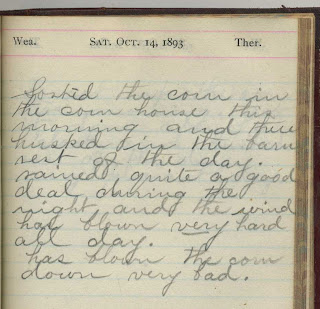 Wea. SAT. OCT. 14, 1893 Ther.
Sorted the corn in
the corn house this
morning and then
husked in the barn
rest of the day.
rained quite a good
deal during the
night and the wind
has blown very hard
all day.
has blown the corn
down very bad.